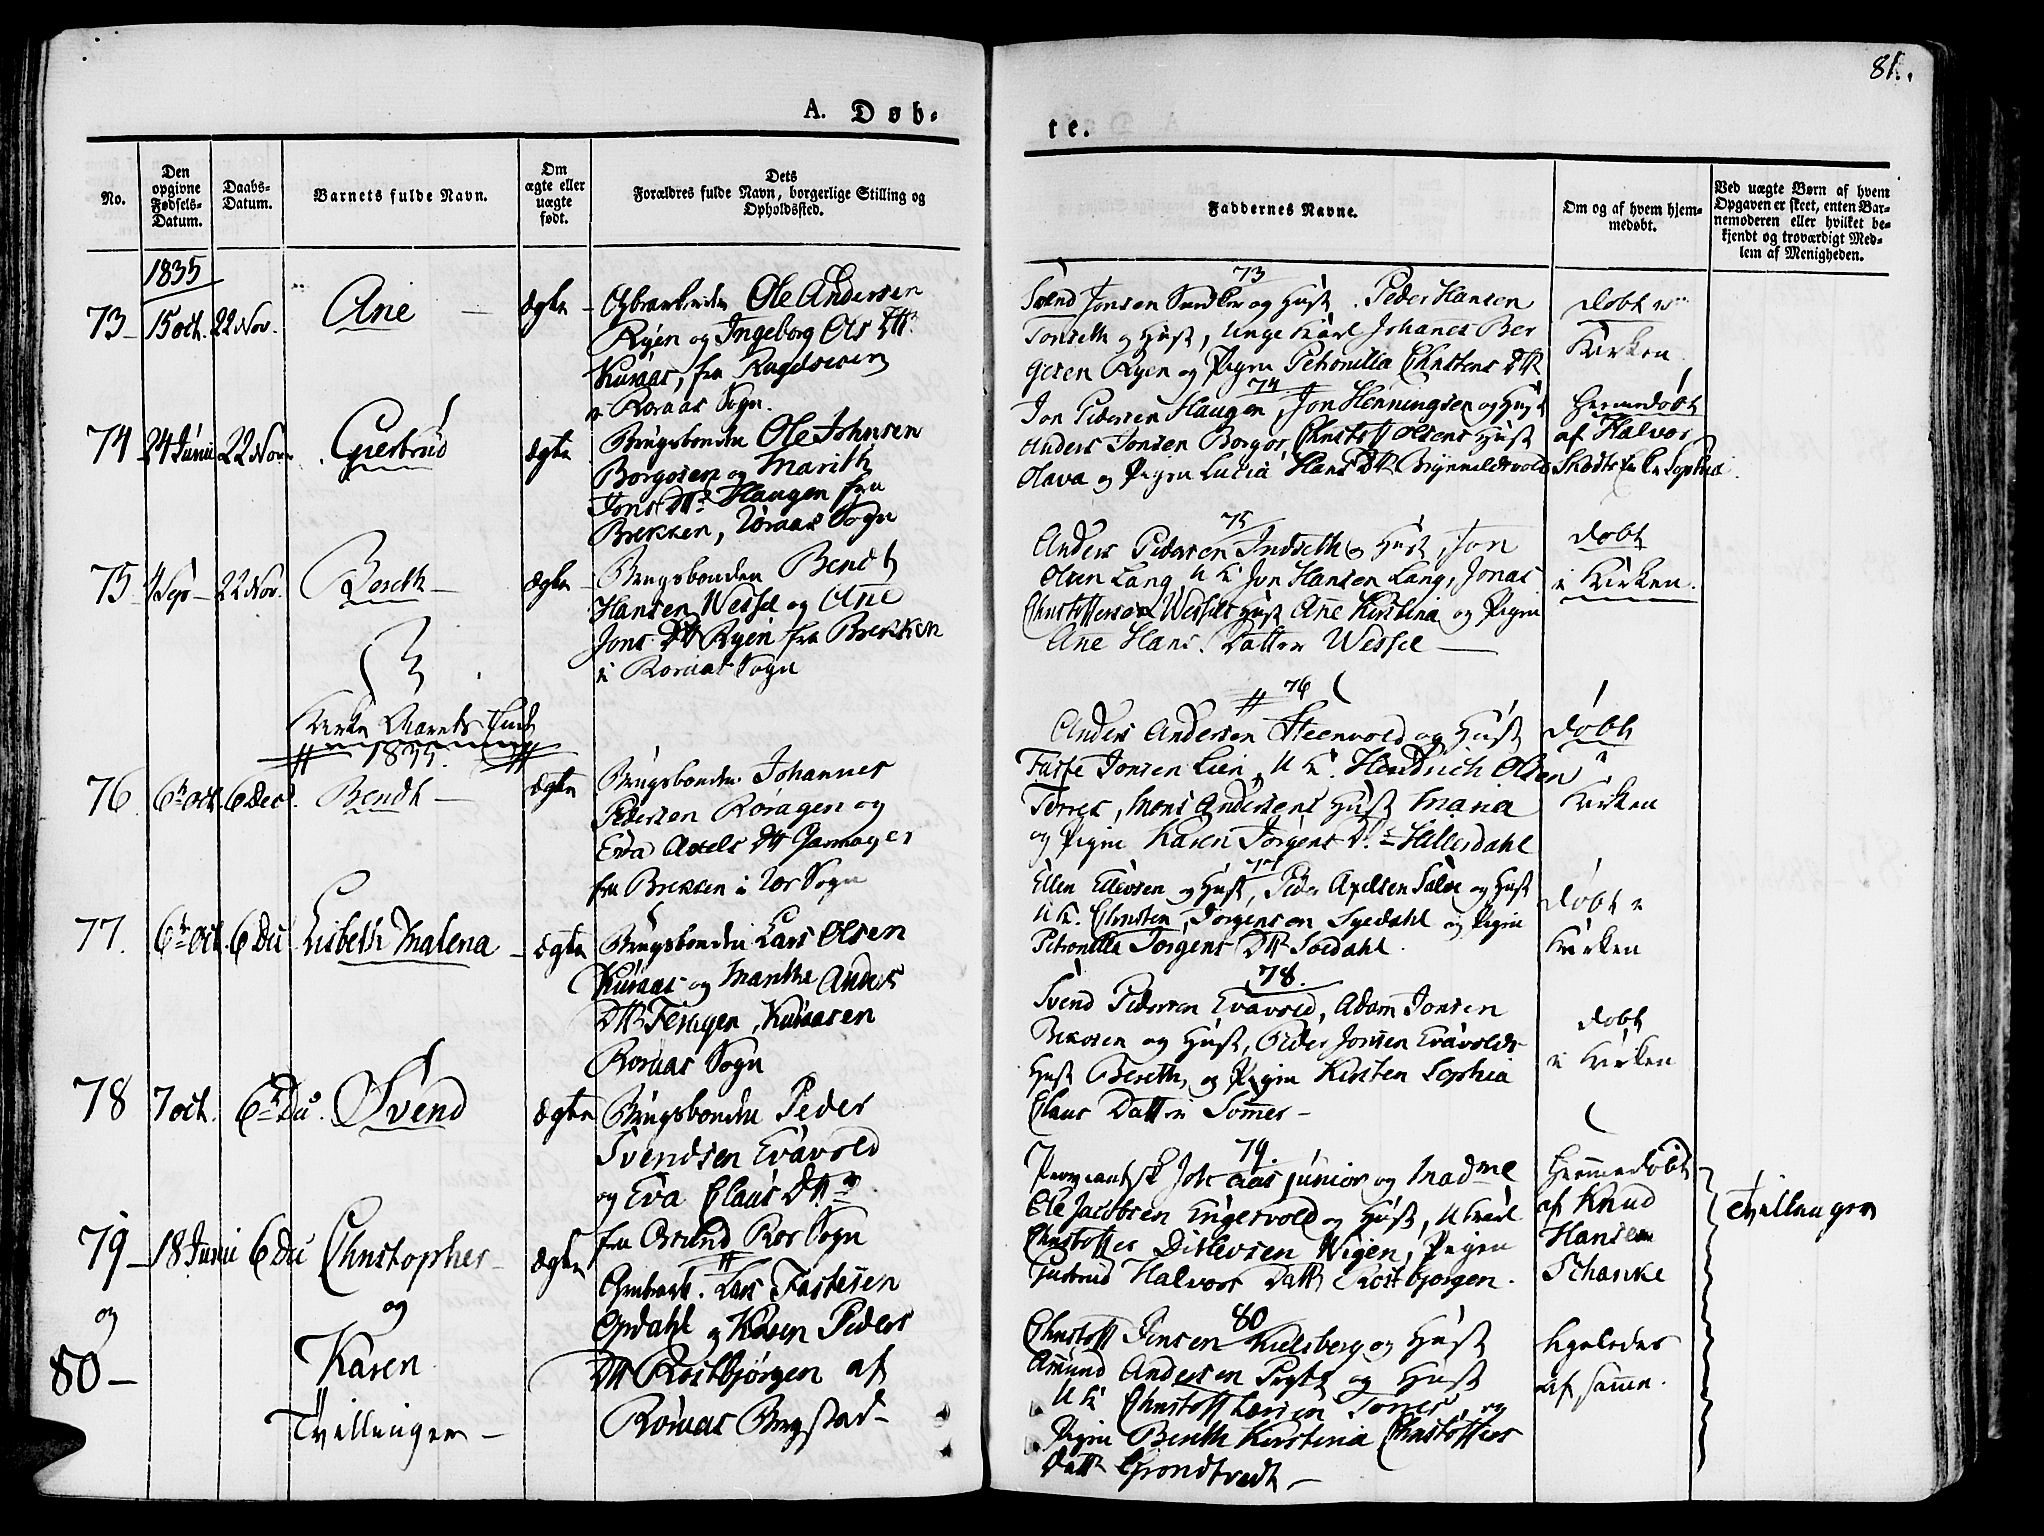 81.
A. Døb-
te.
No.
Den
opgivne
Fødsels-
Datum.
Daabs-
Datum.
Barnets fulde Navn.
Om
ægte eller
uægte
født.
Dets
Forældres fulde Navn, borgerlige Stilling og
Opholdssted.
Faddernes Navne.
Om og af hvem hjem-
medøbt.
Ved uægte Børn af hvem
Opgaven er skeet, enten Bar-
nemoderen eller hvilket be-
kjendt og troværdigt Med-
lem af Menigheden.
1835
73 15 oct. 22 Nov. Ane ægte
Ole Andersen
Ryen og Ingeborg Ols Dtr
Kuraas, fra
i Roraas Sogn.
73
Svend Jonsen og Hust. Peder Hansen
Tonseth og Hust, Unge Karl Johanes Ber
gesen Ryen og Pigen Petronilla Christens Dtr
døbt i
Kirken
74 24 Junii 22 Nov. Giertrud ægte
Brugsbonden Ole Johnsen
Borgosen og Marith
Jons Dtr Haugen fra
Brekken, Roraas Sogn
74
Jon Pedersen Haugen, Jon Henningsen og Hust
Anders Jonsen Borgos, Christoff Olsens Hust
Olava og Pigen Lucia Hans Dtr Brynnildsvold
Hiemmedøbt
af Halvor
75 Sep 22 Nov. Bendt ægte
Brugsbonden Bendt
Hansen Wessel og Ane
Jons Dtr Ryen fra Brekken
i Roraas Sogn
75
Anders Pedersen Indseth og Hust, Jon
Olsen Lang, U K Jon Hansen Lang, Jonas
Christoffersen Wessels Hust Ane Kirstina og Pigen
Ane Hans Datter Wessel
døbt
i Kirken.
Kirke Aarets
1835.
76 6 oct. 6 Dec. Bendt ægte
Brugsbonden Johannes
Pedersen Roragen og
Eva Axels Dtr Jamager
fra Brekken i Ror Sogn
76
Anders Andersen Steenvold og Hust
Faste Jonsen Lien, U K. Hendrich Olsen
Torres, Mons Andersens Hust Maria
og Pigen Karen Jorgens Dr Hillerdahl
døbt
i
Kirken
77. 6 oct. 6 Dec Lisbeth Malena ægte
Brugsbonden Lars Olsen
Kuraas og Marithe Anders
Dtr Feragen, Kuraasen
Roraas Sogn
77
Ellen Ellevsen og Hust, Peder Axelsen og Hust
U K. Christen Jorgensen Syedahl og Pigen
Petronilla Jorgens Dtr Soedahl.
døbt i
Kirken
78 7 oct. 6 Dec. Svend ægte
Brugsbonden Peder
Svendsen Evavold
og Eva Claus Dtr
fra Brekken Ror Sogn
78.
Svend Pedersen Evavold, Adam Jonsen
Bekosen og Hust, Peder Jonsen Evavolds
Hust Bereth, og Pigen Kirsten Sophia
Claus Datter Sommer
døbt
i Kirken
79 18 Junii 6 Dec Christopher ægte
og
80 Karen
Tvillinger
Lars Fastesen
Opdahl og Karen Peders
Dtr Rostbjørgen af
Roraas Bergstad
79.
junior og Madme
Ole Jacobsen Engesvold og Hust, U Karl
Christoffer Ditlevsen Wigen, Pigen
Giertrud Halvors Datr Rostbjorgen.
Hiemmedøbt
af Knud
Hansen
Schanke
Tvillinger
80
Christoff Jensen Kielsberg og Hust
Amund Andersen og Hust
U K Christoff Larsen Tones, og
Pigen Bereth Kirstina Christoffers
Datr Grondtvedt
ligeledes
af samme.